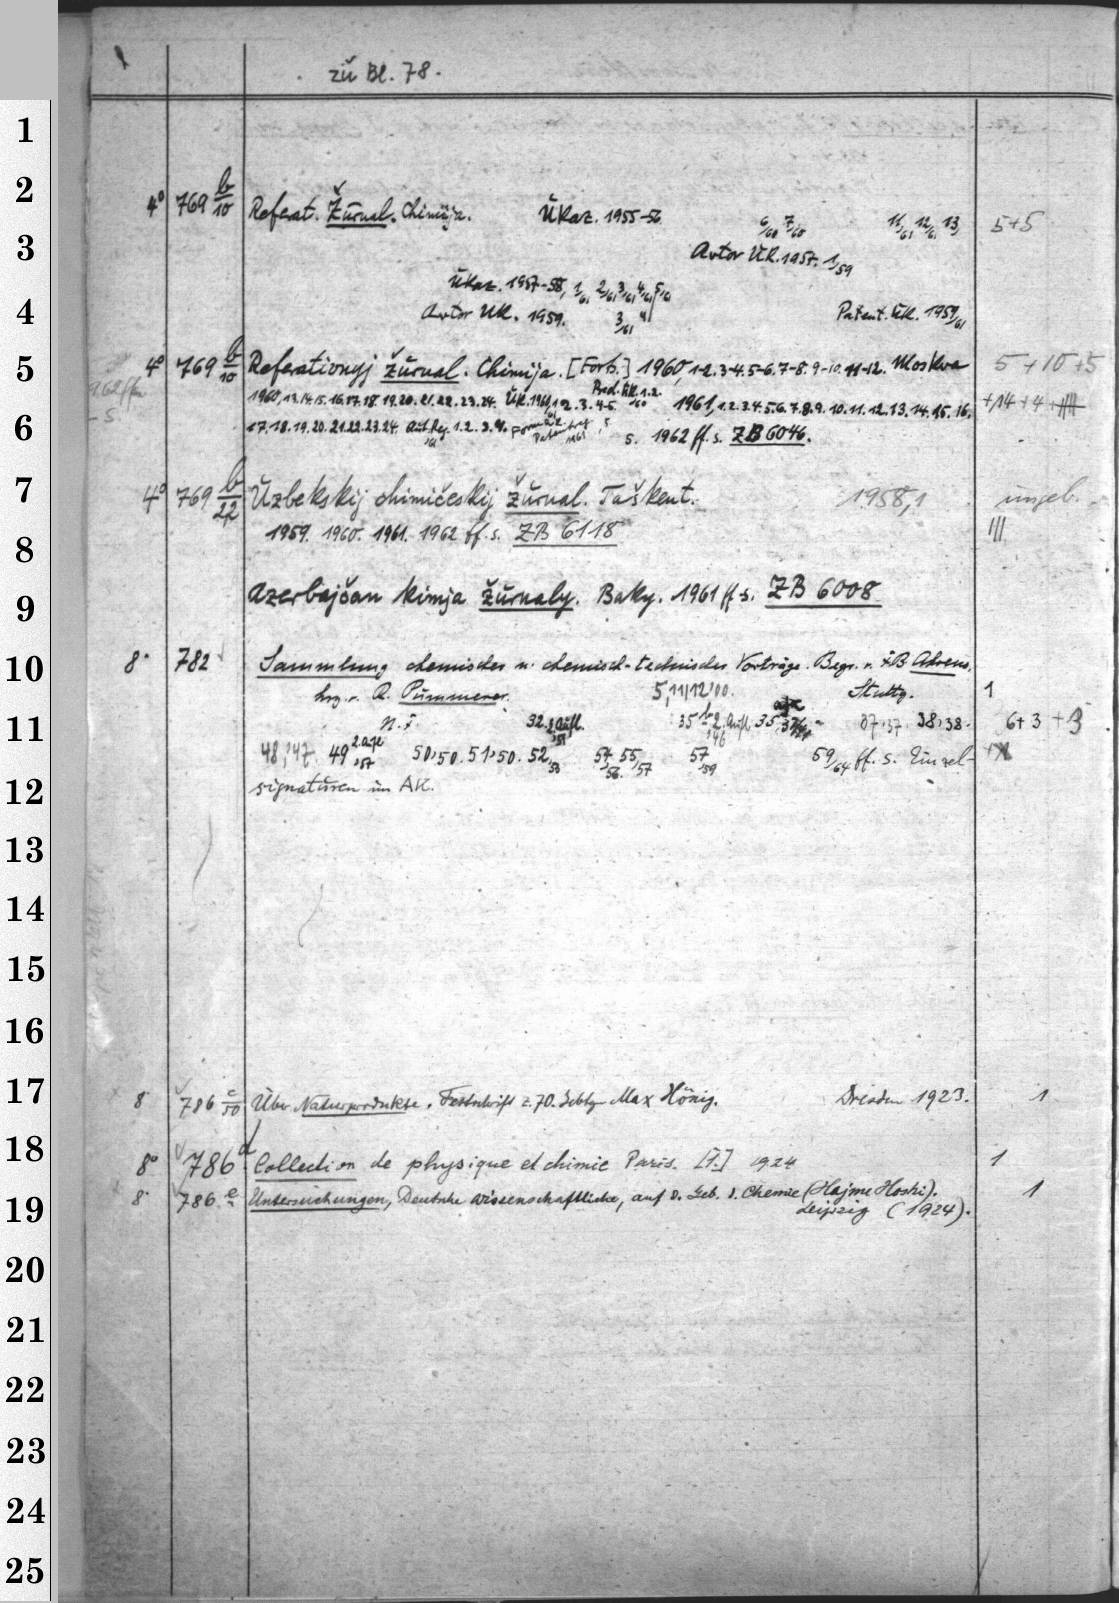 zu Bl. 78.
4° 769 b/10 Referat. Žurnal. Chimija. Ukaz. 1955-56. 6/60 7/60 11/61 12/61 13/ 5+5
Avtor Uk. 1957. 1/59
Ukaz. 1957-58, 1/61 2/61 3/61 4/61 5/61
Avtor Uk. 1959. 3/61 4/ Patent. Uk. 1959/61
4° 769 b/10 Referativnyj žurnal. Chimija. [Forts.] 1960, 1-2. 3-4. 5-6. 7-8. 9-10. 11-12. Moskva 5+10+5
1960, 13. 14. 15. 16. 17. 18. 19. 20. 21. 22. 23. 24. Uk. 1960, 1. 2. 3. 4-5. Pred. Uk. 1. 2. /60 1961, 1. 2. 3. 4. 5. 6. 7. 8. 9. 10. 11. 12. 13. 14. 15. 16. +14+4+
17. 18. 19. 20. 21. 22. 23. 24. Aut. Reg. 1. 2. 3. 4. /61 s. 1962 ff. s. ZB 6046.
4° 769 b/22 Uzbekskij chimičeskij žurnal. Taškent. 1958,1 ungeb.
1959. 1960. 1961. 1962 ff. s. ZB 6118 |||
Azerbajčan kimja žurnaly. Baky. 1961 ff. s. ZB 6008
8° 782 Sammlung chemischer u. chemisch-technischer Vorträge. Begr. v. F.B. Ahrens,
hrg. v. R. Pummerer. 5,11/12/'00. Stuttg. 1
N.F. 32, 2. Aufl. '51 35, 1-2. Aufl. '46 37,'37. 38,'38. 6+3+3
48,'47. 49 2. Aufl. ,'57 50,'50. 51,'50. 52,'53 54,'56. 55,'57 57,'59 59/64 ff. s. Einzel-
signaturen im AK.
8° 786 c/50 Über Naturprodukte. Festschrift z. 70. Gebtg. Max Hönig. Dresden 1923. 1
8° 786 d Collection de physique et chimie Paris. [F.] 1924 1
8° 786 e Untersuchungen, Deutsche wissenschaftliche, auf d. Geb. d. Chemie (Hajme Hoshi). 1
Leipzig (1924).
1
2
3
4
5
6
7
8
9
10
11
12
13
14
15
16
17
18
19
20
21
22
23
24
25